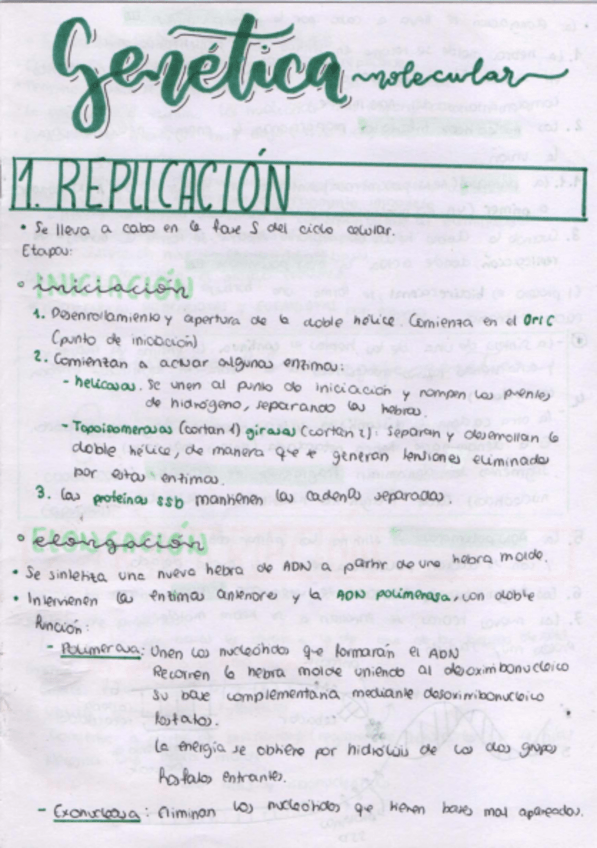 Genética molecular
1. REPLICACIÓN
• Se lleva a cabo en la fase S del ciclo celular.
Etapas:
• INICIACIÓN
1. Desenrollamiento y apertura de la doble hélice. Comienza en el OriC
(punto de iniciación)
2. Comienzan a actuar algunas enzimas:
- helicasas. Se unen al punto de iniciación y rompen los puentes
de hidrógeno, separando las hebras.
- Topoisomerasas (cortan 1) girasas (cortan 2): Separan y desenrollan la
doble hélice, de manera que se generan tensiones eliminadas
por estas enzimas.
3. Las proteínas SSB mantienen las cadenas separadas.
• ELONGACIÓN
• Se sintetiza una nueva hebra de ADN a partir de una hebra molde.
• Intervienen las enzimas anteriores y la ADN polimerasa, con doble
función:
- Polimerasa: Unen los nucleótidos que formarán el ADN
Recorren la hebra molde uniendo al desoxirribonucleico
su base complementaria mediante desoxirribonucleico
fosfatos.
La energía se obtiene por hidrólisis de los dos grupos
fosfatos entrantes.
- Exonucleasa: Eliminan los nucleótidos que tienen bases mal apareadas.